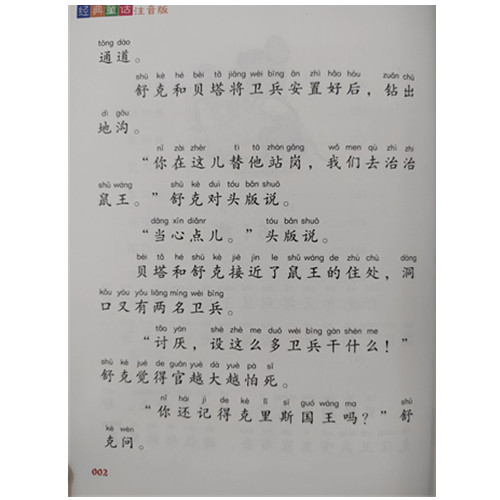 经典童话注音版
tōng dào
通道。
shū kè hé bèi tǎ jiāng wèi bīng ān zhì hǎo hòu zuān chū
舒克和贝塔将卫兵安置好后，钻出
dì gōu
地沟。
nǐ zài zhèr tì tā zhàn gǎng wǒ men qù zhì zhi
“你在这儿替他站岗，我们去治治
shǔ wáng shū kè duì tóu bǎn shuō
鼠王。”舒克对头版说。
dāng xīn diǎnr tóu bǎn shuō
“当心点儿。”头版说。
bèi tǎ hé shū kè jiē jìn le shǔ wáng de zhù chù dòng
贝塔和舒克接近了鼠王的住处，洞
kǒu yòu yǒu liǎng míng wèi bīng
口又有两名卫兵。
tǎo yàn shè zhè me duō wèi bīng gàn shén me
“讨厌，设这么多卫兵干什么！”
shū kè jué de guān yuè dà yuè pà sǐ
舒克觉得官越大越怕死。
nǐ hái jì de kè lǐ sī guó wáng ma shū
“你还记得克里斯国王吗？”舒
kè wèn
克问。
002